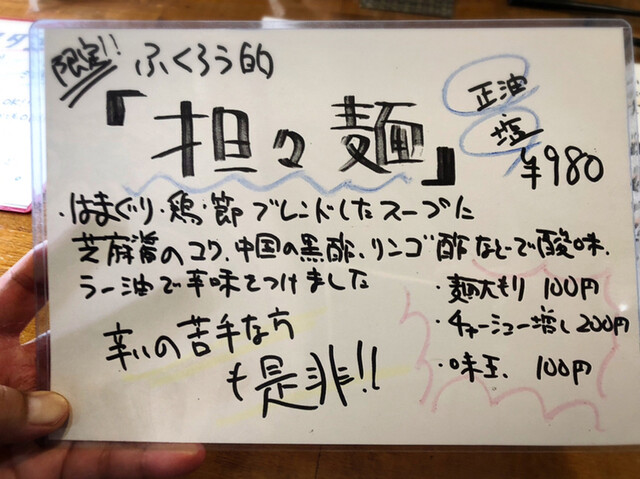 限定!! ふくろう的
「担々麺」
正油
塩
¥980
・はまぐり・鶏・節ブレンドしたスープに
芝麻醤のコク、中国の黒酢、リンゴ酢などで酸味、
ラー油で辛味をつけました
・麺大もり 100円
・チャーシュー増し 200円
・味玉 100円
辛いの苦手な方
も是非!!